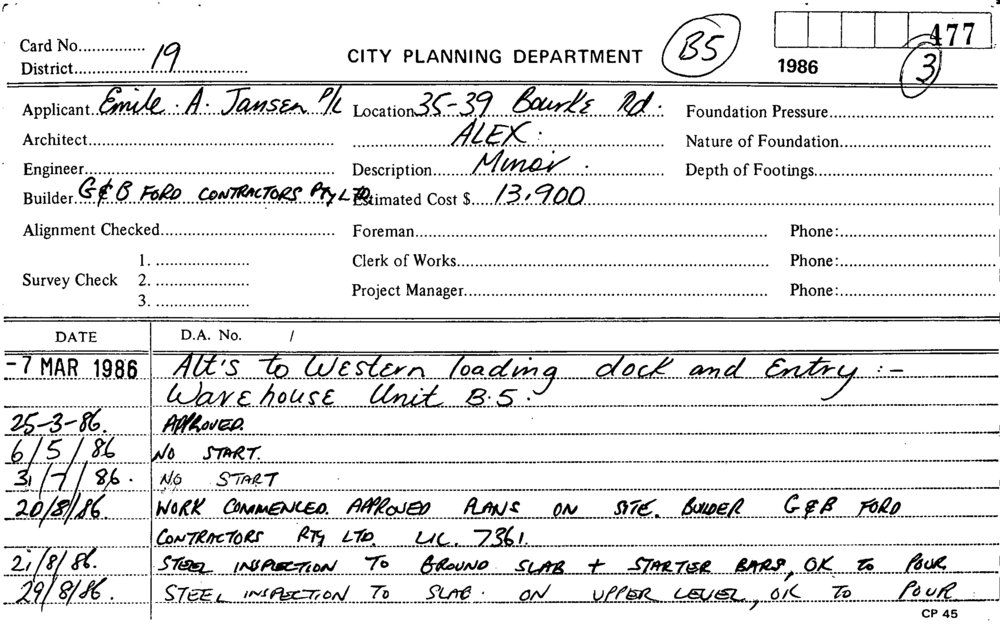 Card No............... CITY PLANNING DEPARTMENT B5 477
District 19 1986 3
Applicant Emile. A. Jansen P/L Location 35-39 Bourke Rd. Foundation Pressure
Architect ALEX. Nature of Foundation
Engineer Description Minor. Depth of Footings
Builder G & B FORD CONTRACTORS PTY LTD. Estimated Cost $ 13,900
Alignment Checked Foreman Phone:
1. Clerk of Works Phone:
Survey Check 2.
3. Project Manager Phone:
DATE D.A. No. /
-7 MAR 1986 Alt's to Western loading dock and Entry :-
Warehouse Unit B.5.
25-3-86. APPROVED.
6/5/86 NO START.
31/7/86. NO START
20/8/86. WORK COMMENCED. APPROVED PLANS ON SITE. BUILDER G & B FORD
CONTRACTORS PTY LTD. LIC. 7361.
21/8/86. STEEL INSPECTION TO GROUND SLAB + STARTER BARS, OK TO POUR
29/8/86. STEEL INSPECTION TO SLAB. ON UPPER LEVEL, OK TO POUR
CP 45